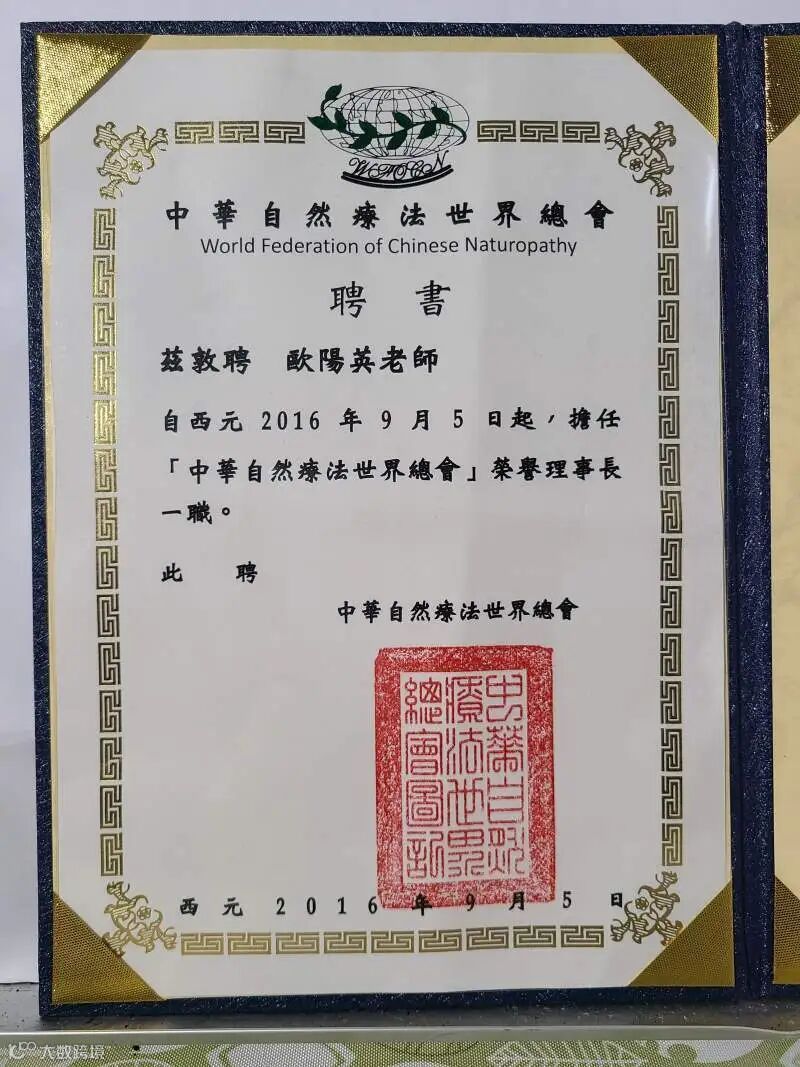 WFOCN
中華自然療法世界總會
World Federation of Chinese Naturopathy
聘書
茲敦聘 歐陽英老師
自西元 2016 年 9 月 5 日起，擔任
「中華自然療法世界總會」榮譽理事長
一職。
此 聘
中華自然療法世界總會
中華自然
療法世界
總會圖記
西元 2016 年 9 月 5 日
大数跨境